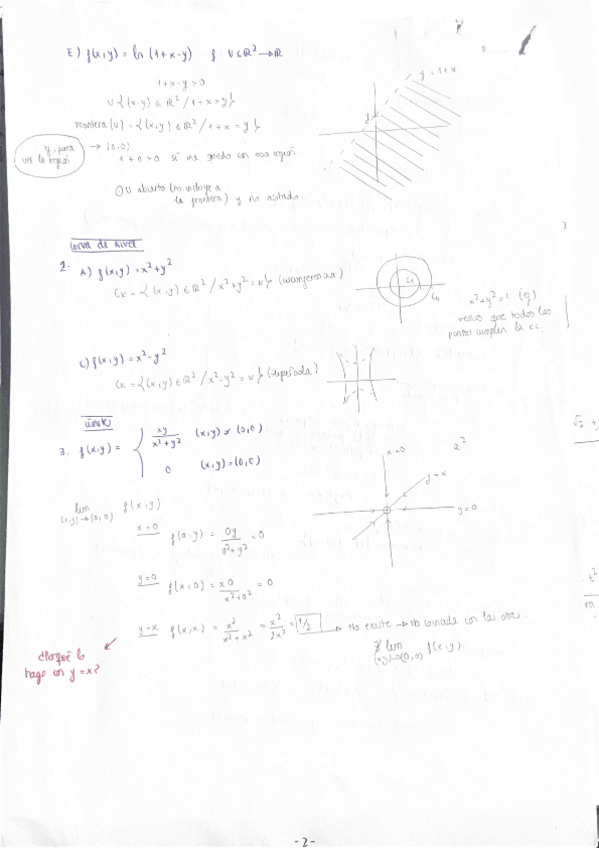 E) f(x,y) = ln (1+x-y)   f: U⊆ℝ² → ℝ
1+x-y>0
U={(x,y) ∈ ℝ² / 1+x>y}
Frontera(U) = {(x,y) ∈ ℝ² / 1+x = y}
para ver la región → (0,0)
1+0>0 sí me quedo con esa región.
U abierto (no incluye a
la frontera) y no acotado
y=1+x
Curva de Nivel
2- A) f(x,y) = x²+y²
Ck = {(x,y) ∈ ℝ² / x²+y² = k} (circunferencia)
C1
C4
x²+y²=
que todos los
puntos cumplen la
C) f(x,y) = x²-y²
Ck = {(x,y) ∈ ℝ² / x²-y² = k} (Hipérbola)
Límite
3. f(x,y) = { xy/(x²+y²)   (x,y) ≠ (0,0)
0   (x,y)=(0,0)
x=0
ℝ²
y=x
y=0
lim (x,y)→(0,0) f(x,y)
x=0   f(0,y) = 0y/(0²+y²) = 0
y=0   f(x,0) = x0/(x²+0²) = 0
y=x   f(x,x) = x²/(x²+x²) = x²/2x² = 1/2 → No existe → No coincide con las otras.
∄ lim (x,y)→(0,0) f(x,y)
¿Porqué lo
hago con y=x?
-2-